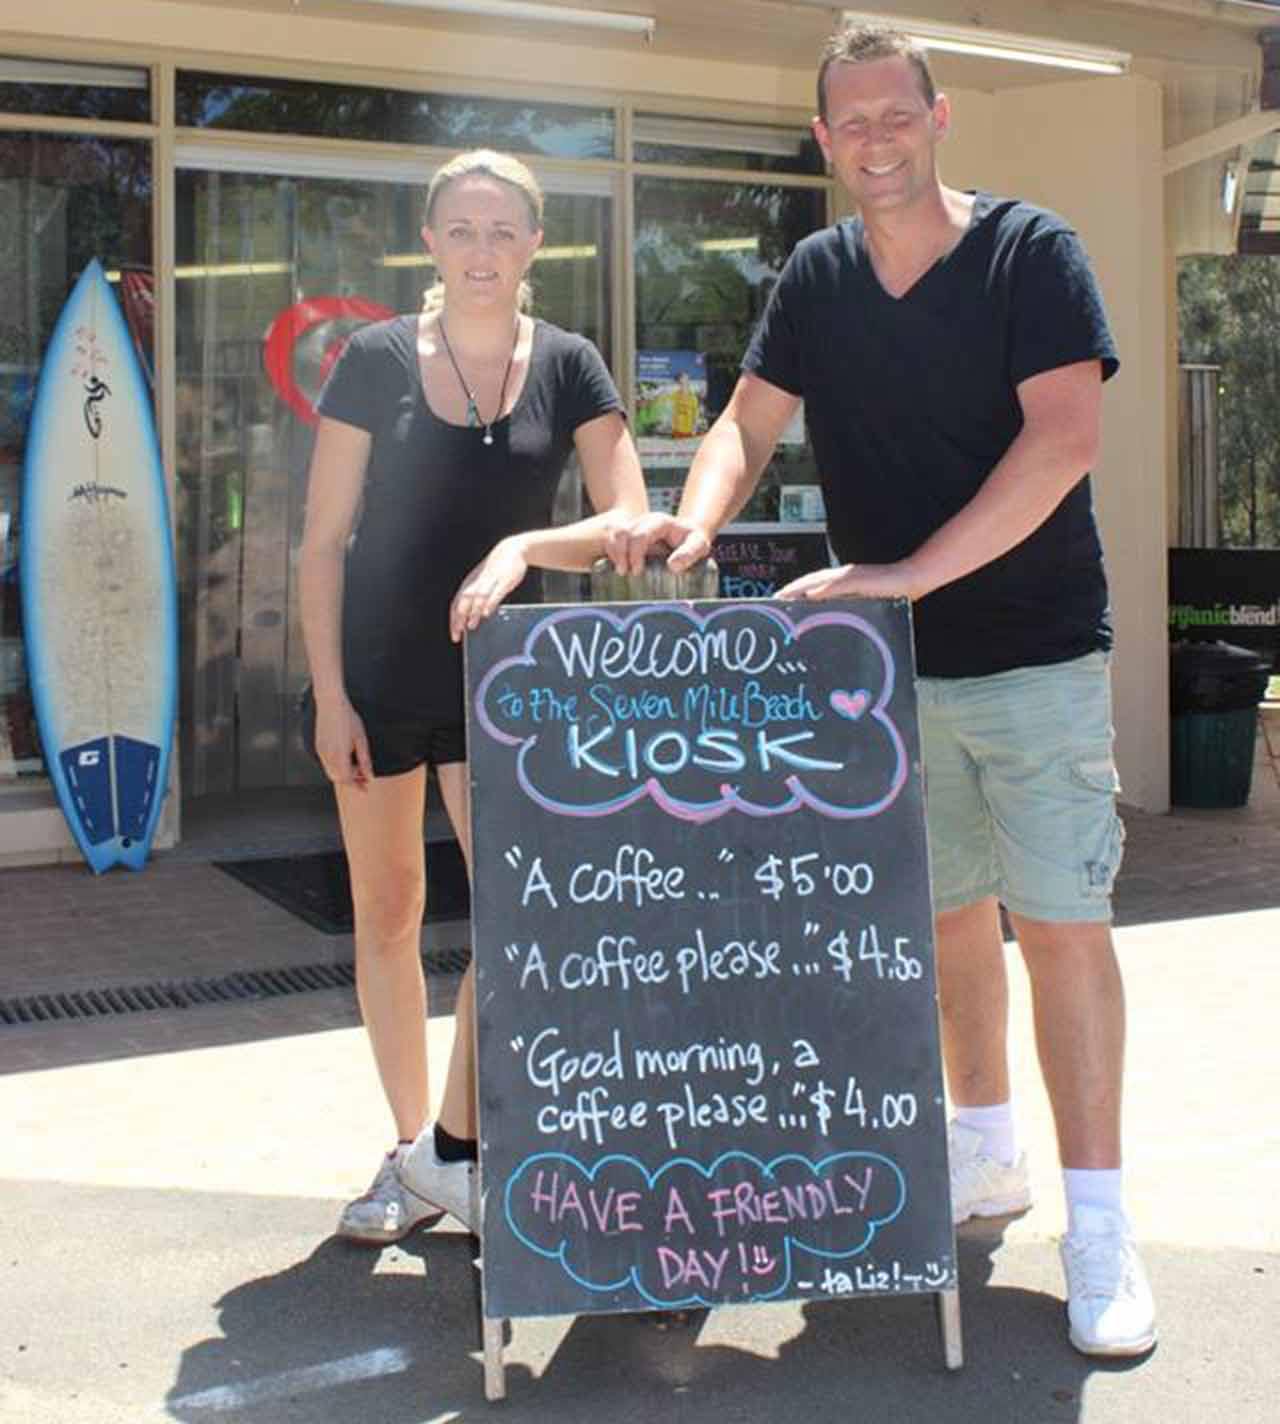 Welcome...
to the Seven Mile Beach
KIOSK
"A coffee.." $5'00
"A coffee please..." $4.50
"Good morning, a
coffee please..." $4.00
HAVE A FRIENDLY
DAY!
- ta Liz!
RELEASE YOUR
INNER
FOX
rganicblend